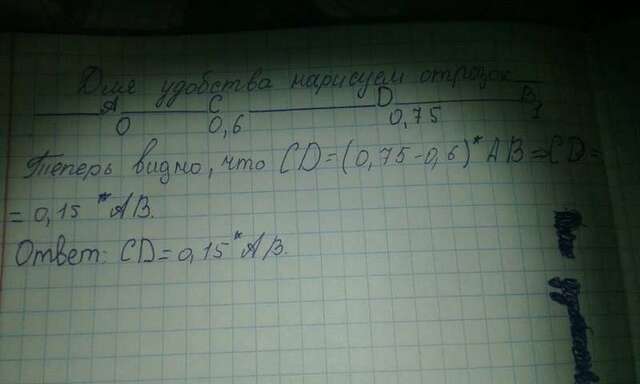 Для удобства нарисуем отрезок
A C D B
0 0,6 0,75 1
Теперь видно, что CD=(0,75-0,6)*AB⇒CD=
=0,15*AB.
Ответ: CD=0,15*AB.